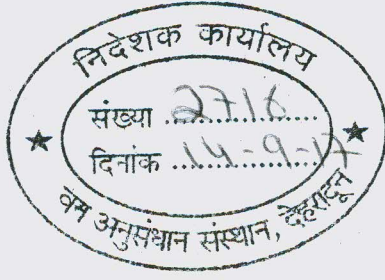 निदेशक कार्यालय
संख्या 2716
दिनांक 14-9-17
वन अनुसंधान संस्थान, देहरादून